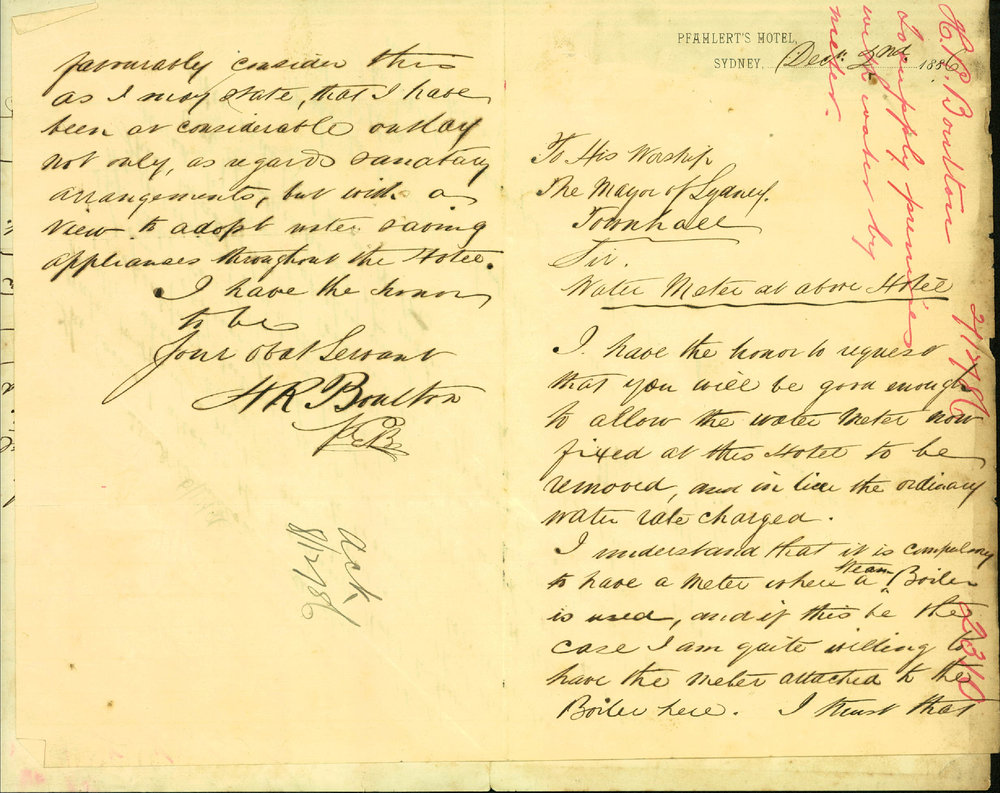 PFAHLERT'S HOTEL,
SYDNEY, Decr. 2nd 1886
To His Worship
The Mayor of Sydney.
Townhall
Sir.
Water Meter at above Hotel
I have the honor to request
that you will be good enough
to allow the water meter now
fixed at this Hotel to be
removed, and in lieu the ordinary
water rate charged.
I understand that it is compulsory
to have a meter where a steam Boiler
is used, and if this be the
case I am quite willing to
have the meter attached to the
Boiler here. I trust that
favourably consider this
as I may state, that I have
been at considerable outlay
not only, as regards sanatary
arrangements, but with a
view to adopt water saving
appliances throughout the Hotel.
I have the honor
to be
Your obdt Servant
H R Boulton
ack
8/12/86
H. P. Boulton
To supply premises
with water by
meter.
2/12/86
2310